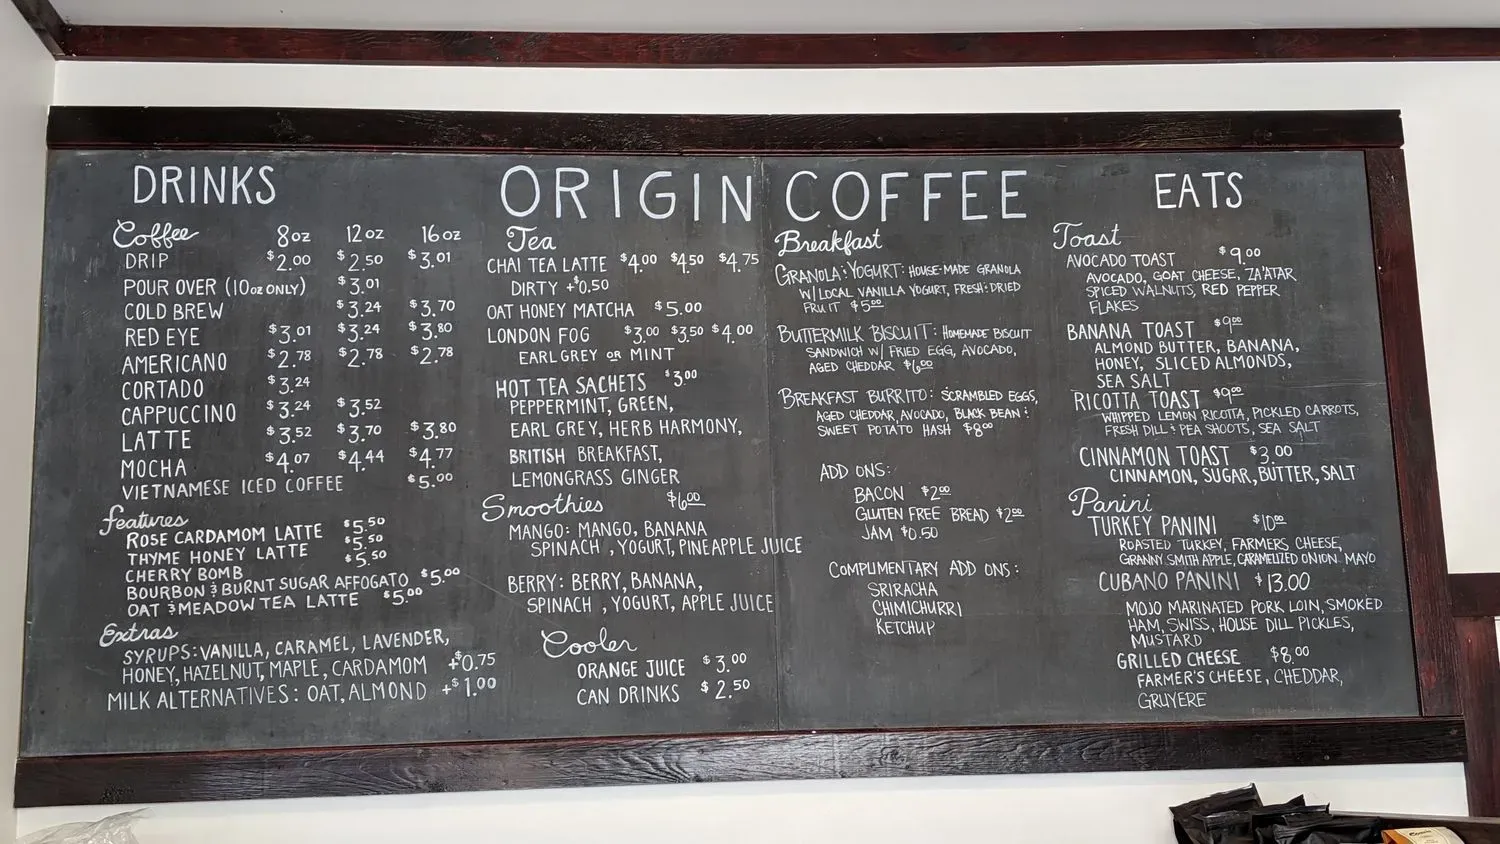 DRINKS
ORIGIN COFFEE
EATS
Coffee 8oz 12oz 16oz
DRIP $2.00 $2.50 $3.01
POUR OVER (10oz ONLY) $3.01
COLD BREW $3.24 $3.70
RED EYE $3.01 $3.24 $3.80
AMERICANO $2.78 $2.78 $2.78
CORTADO $3.24
CAPPUCCINO $3.24 $3.52
LATTE $3.52 $3.70 $3.80
MOCHA $4.07 $4.44 $4.77
VIETNAMESE ICED COFFEE $5.00
Features
ROSE CARDAMOM LATTE $5.50
THYME HONEY LATTE $5.50
CHERRY BOMB $5.50
BOURBON & BURNT SUGAR AFFOGATO $5.00
OAT & MEADOW TEA LATTE $5.00
Extras
SYRUPS: VANILLA, CARAMEL, LAVENDER,
HONEY, HAZELNUT, MAPLE, CARDAMOM +$0.75
MILK ALTERNATIVES: OAT, ALMOND +$1.00
Tea
CHAI TEA LATTE $4.00 $4.50 $4.75
DIRTY +$0.50
OAT HONEY MATCHA $5.00
LONDON FOG $3.00 $3.50 $4.00
EARL GREY OR MINT
HOT TEA SACHETS $3.00
PEPPERMINT, GREEN,
EARL GREY, HERB HARMONY,
BRITISH BREAKFAST,
LEMONGRASS GINGER
Smoothies $6.00
MANGO: MANGO, BANANA
SPINACH, YOGURT, PINEAPPLE JUICE
BERRY: BERRY, BANANA,
SPINACH, YOGURT, APPLE JUICE
Cooler
ORANGE JUICE $3.00
CAN DRINKS $2.50
Breakfast
GRANOLA & YOGURT: HOUSE-MADE GRANOLA
W/ LOCAL VANILLA YOGURT, FRESH & DRIED
FRUIT $5.00
BUTTERMILK BISCUIT: HOMEMADE BISCUIT
SANDWICH W/ FRIED EGG, AVOCADO,
AGED CHEDDAR $6.00
BREAKFAST BURRITO: SCRAMBLED EGGS,
AGED CHEDDAR, AVOCADO, BLACK BEAN &
SWEET POTATO HASH $8.00
ADD ONS:
BACON $2.00
GLUTEN FREE BREAD $2.00
JAM $0.50
COMPLIMENTARY ADD ONS:
SRIRACHA
CHIMICHURRI
KETCHUP
Toast
AVOCADO TOAST $9.00
AVOCADO, GOAT CHEESE, ZA'ATAR
SPICED WALNUTS, RED PEPPER
FLAKES
BANANA TOAST $9.00
ALMOND BUTTER, BANANA,
HONEY, SLICED ALMONDS,
SEA SALT
RICOTTA TOAST $9.00
WHIPPED LEMON RICOTTA, PICKLED CARROTS,
FRESH DILL & PEA SHOOTS, SEA SALT
CINNAMON TOAST $3.00
CINNAMON, SUGAR, BUTTER, SALT
Panini
TURKEY PANINI $10.00
ROASTED TURKEY, FARMERS CHEESE,
GRANNY SMITH APPLE, CARAMELIZED ONION MAYO
CUBANO PANINI $13.00
MOJO MARINATED PORK LOIN, SMOKED
HAM, SWISS, HOUSE DILL PICKLES,
MUSTARD
GRILLED CHEESE $8.00
FARMER'S CHEESE, CHEDDAR,
GRUYERE